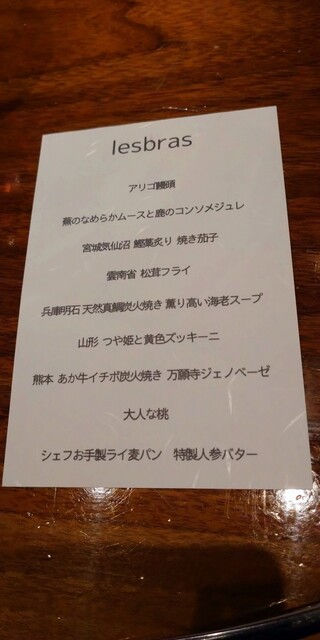 lesbras
アリゴ饅頭
蕪のなめらかムースと鹿のコンソメジュレ
宮城気仙沼 鰹藁炙り 焼き茄子
雲南省 松茸フライ
兵庫明石 天然真鯛炭火焼き 薫り高い海老スープ
山形 つや姫と黄色ズッキーニ
熊本 あか牛イチボ炭火焼き 万願寺ジェノベーゼ
大人な桃
シェフお手製ライ麦パン 特製人参バター